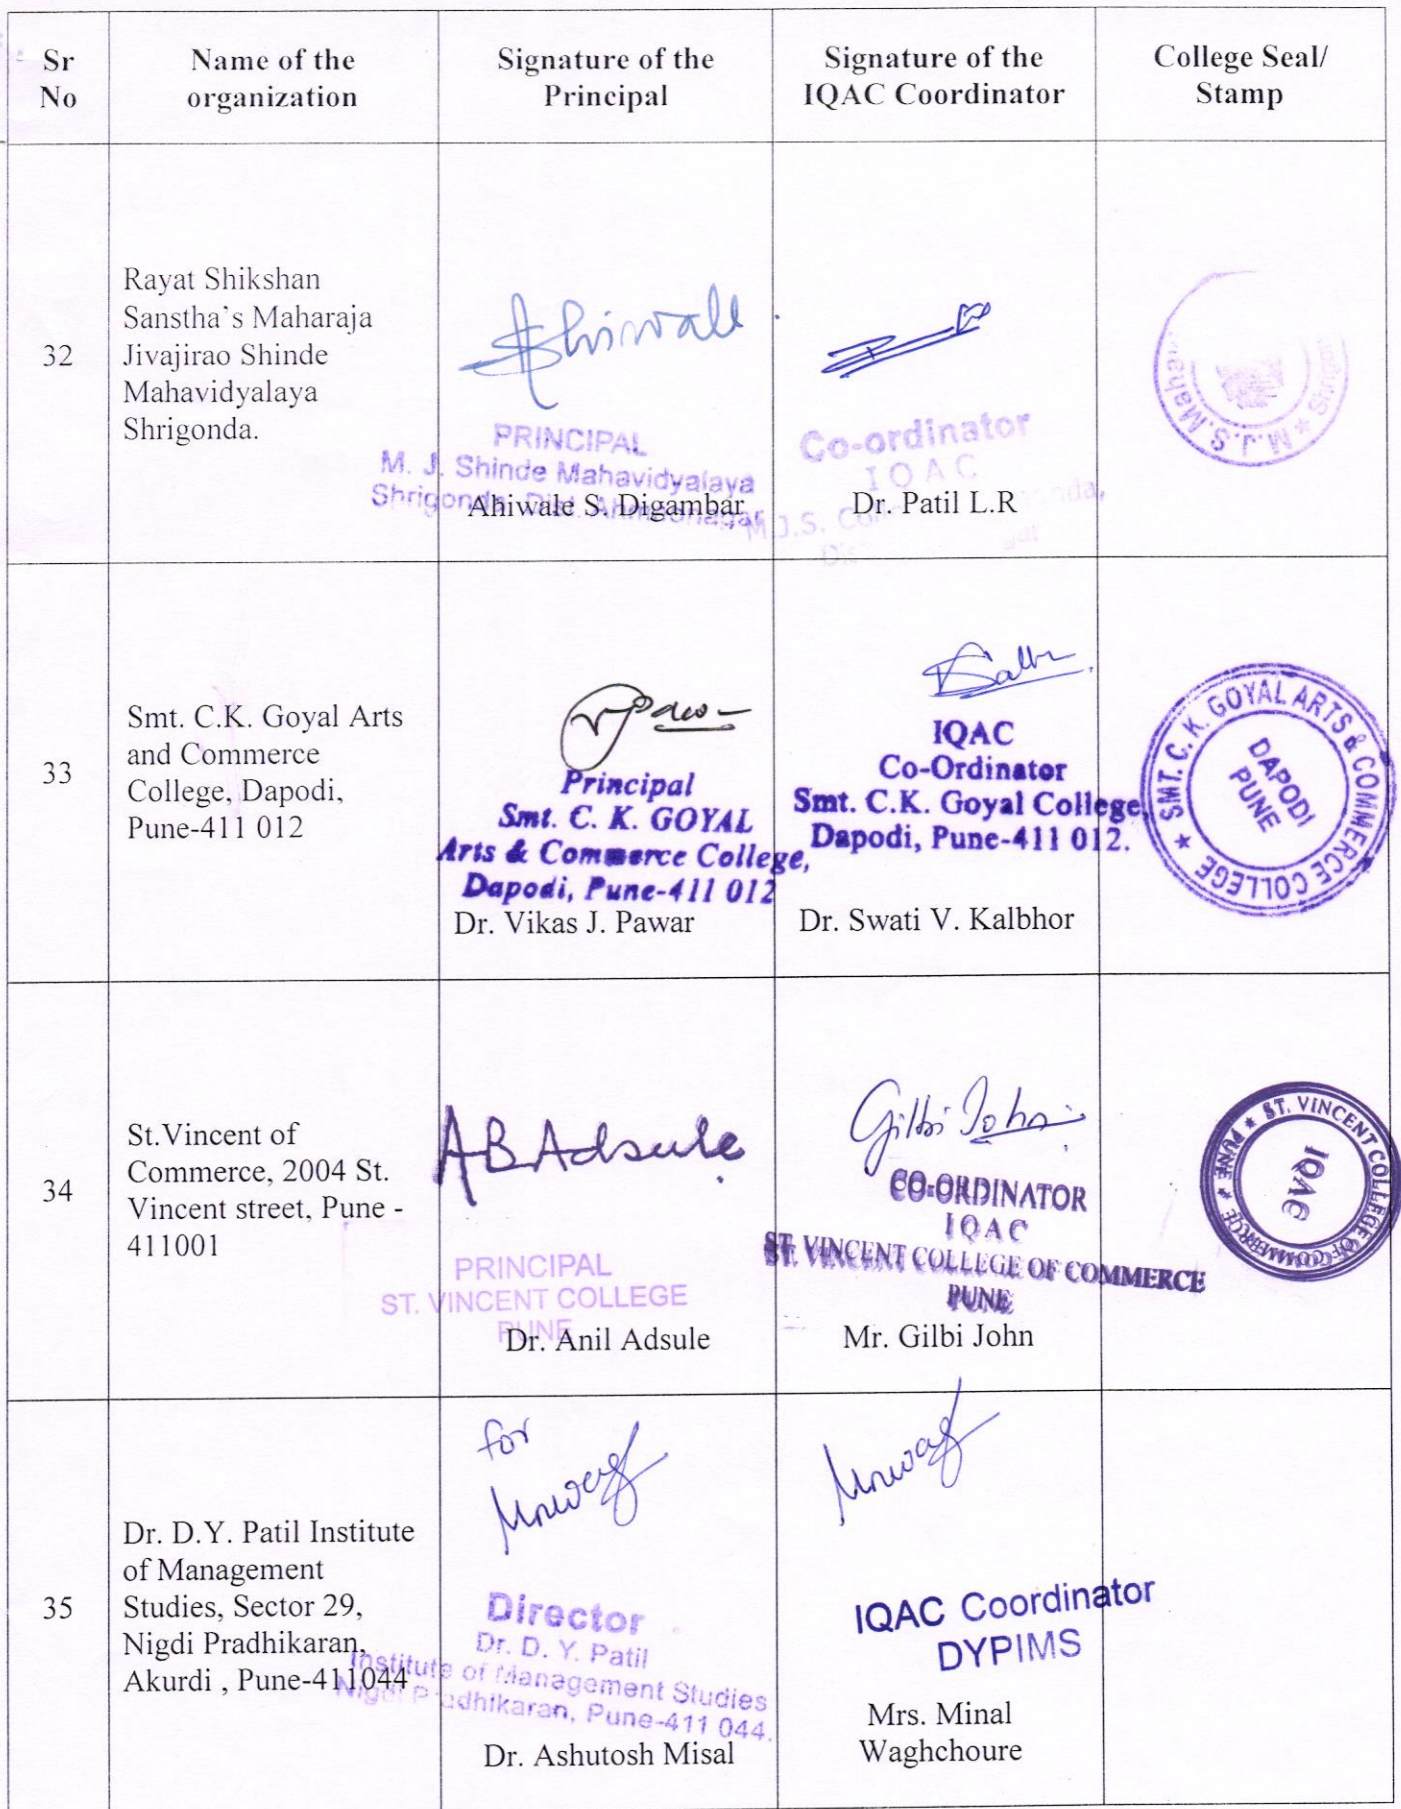 Sr No
Name of the organization
Signature of the Principal
Signature of the IQAC Coordinator
College Seal/ Stamp
32
Rayat Shikshan
Sanstha's Maharaja
Jivajirao Shinde
Mahavidyalaya
Shrigonda.
Ahiwale
PRINCIPAL
M. J. Shinde Mahavidyalaya
Shrigonda, Dist. Ahmednagar
Ahiwale S. Digambar
Co-ordinator
IQAC
M.J.S.
Dr. Patil L.R
★ M.J.S.
33
Smt. C.K. Goyal Arts
and Commerce
College, Dapodi,
Pune-411 012
Principal
Smt. C. K. GOYAL
Arts & Commerce College,
Dapodi, Pune-411 012
Dr. Vikas J. Pawar
IQAC
Co-Ordinator
Smt. C.K. Goyal College,
Dapodi, Pune-411 012.
Dr. Swati V. Kalbhor
★ SMT. C. K. GOYAL ARTS & COMMERCE COLLEGE
DAPODI
PUNE
34
St.Vincent of
Commerce, 2004 St.
Vincent street, Pune -
411001
ABAdsule
PRINCIPAL
ST. VINCENT COLLEGE
PUNE
Dr. Anil Adsule
Gilbi John
CO-ORDINATOR
IQAC
ST. VINCENT COLLEGE OF COMMERCE
PUNE
Mr. Gilbi John
★ ST. VINCENT COLLEGE OF COMMERCE ★ PUNE
IQAC
35
Dr. D.Y. Patil Institute
of Management
Studies, Sector 29,
Nigdi Pradhikaran,
Akurdi , Pune-411044
for
Director
Dr. D. Y. Patil
Institute of Management Studies
Nigdi Pradhikaran, Pune-411 044.
Dr. Ashutosh Misal
IQAC Coordinator
DYPIMS
Mrs. Minal
Waghchoure